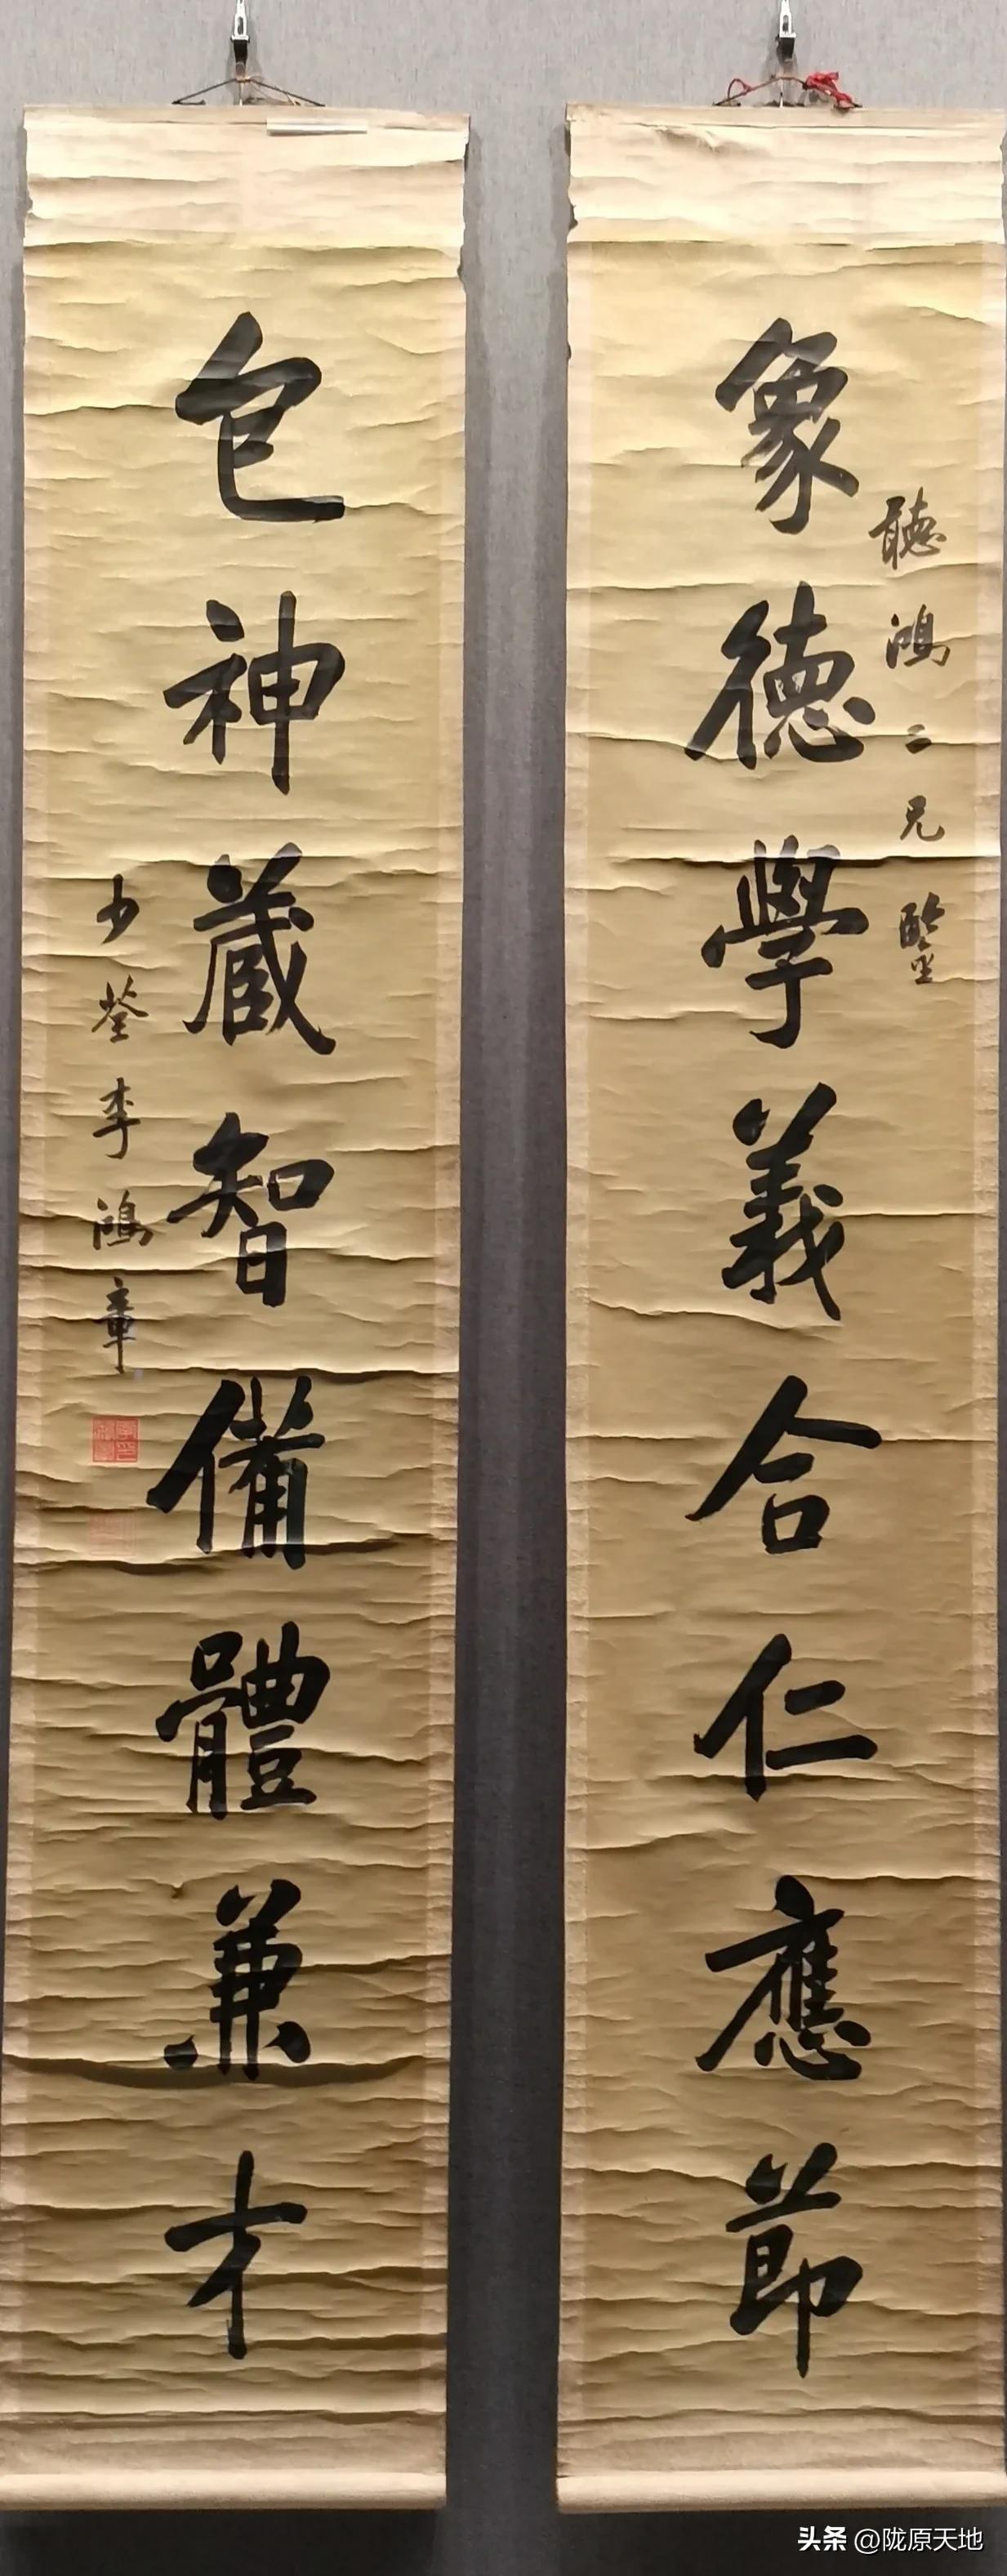 聽鴻二兄鑒
象德學義合仁應節
包神藏智備體兼才
少荃李鴻章
头条 @陇原天地